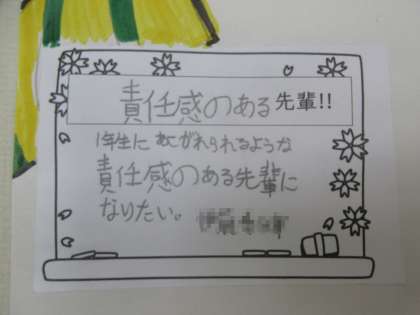 責任感のある先輩!!
1年生にあこがれられるような
責任感のある先輩に
なりたい。